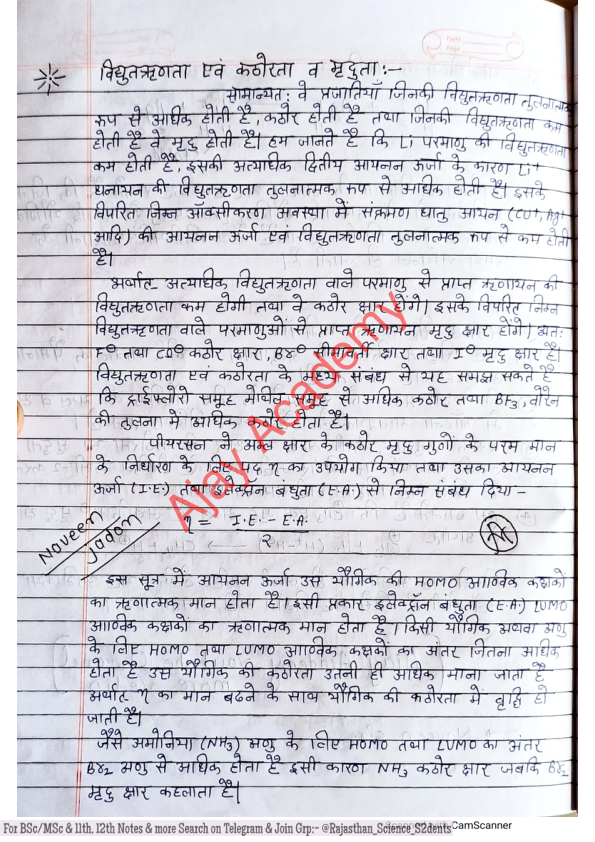 विद्युतऋणता एवं कठोरता व मृदुता :-
सामान्यतः वे प्रजातियाँ जिनकी विद्युतऋणता तुलनात्मक
रूप से अधिक होती है, कठोर होती है तथा जिनकी विद्युतऋणता कम
होती है वे मृदु होती है। हम जानते है कि Li परमाणु की विद्युतऋणता
कम होती है, इसकी अत्याधिक द्वितीय आयनन ऊर्जा के कारण Li+
धनायन की विद्युतऋणता तुलनात्मक रूप से अधिक होती है। इसके
विपरित निम्न ऑक्सीकरण अवस्था में संक्रमण धातु आयन (Cu+, Ag+
आदि) की आयनन ऊर्जा एवं विद्युतऋणता तुलनात्मक रूप से कम होती
है।
अर्थात् अत्याधिक विद्युतऋणता वाले परमाणु से प्राप्त ऋणायन की
विद्युतऋणता कम होगी तथा वे कठोर क्षार होंगे। इसके विपरित निम्न
विद्युतऋणता वाले परमाणुओं से प्राप्त ऋणायन मृदु क्षार होंगे। अतः
F⊖ तथा Cl⊖ कठोर क्षार, Br⊖ सीमावर्ती क्षार तथा I⊖ मृदु क्षार है।
विद्युतऋणता एवं कठोरता के मध्य संबंध से यह समझ सकते है
कि ट्राईफ्लोरो समूह मेथिल समूह से अधिक कठोर तथा BF3, बोरेन
की तुलना में अधिक कठोर होता है।
पीयरसन ने अम्ल क्षार के कठोर मृदु गुणों के परम मान
के निर्धारण के लिए पद η का उपयोग किया तथा उसका आयनन
ऊर्जा (I.E.) तथा इलेक्ट्रॉन बंधुता (E.A.) से निम्न संबंध दिया -
η = I.E. - E.A.
2
Naveen
Jadon
इस सूत्र में आयनन ऊर्जा उस यौगिक की HOMO आण्विक कक्षकों
का ऋणात्मक मान होता है। इसी प्रकार इलेक्ट्रॉन बंधुता (E.A.) LUMO
आण्विक कक्षकों का ऋणात्मक मान होता है। किसी यौगिक अथवा अणु
के लिए HOMO तथा LUMO आण्विक कक्षकों का अंतर जितना अधिक
होता है उस यौगिक की कठोरता उतनी ही अधिक माना जाता है
अर्थात् η का मान बढने के साथ यौगिक की कठोरता में वृद्धि हो
जाती है।
जैसे अमोनिया (NH3) अणु के लिए HOMO तथा LUMO का अंतर
Br2 अणु से अधिक होता है इसी कारण NH3 कठोर क्षार जबकि Br2
मृदु क्षार कहलाता है।
Ajay Academy
For BSc/MSc & 11th, 12th Notes & more Search on Telegram & Join Grp:- @Rajasthan_Science_S2dents
CamScanner